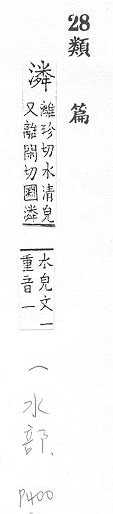 28類篇
潾
離珍切水清皃
又離閑切國潾
水皃文一
重音一
(水部.
P400